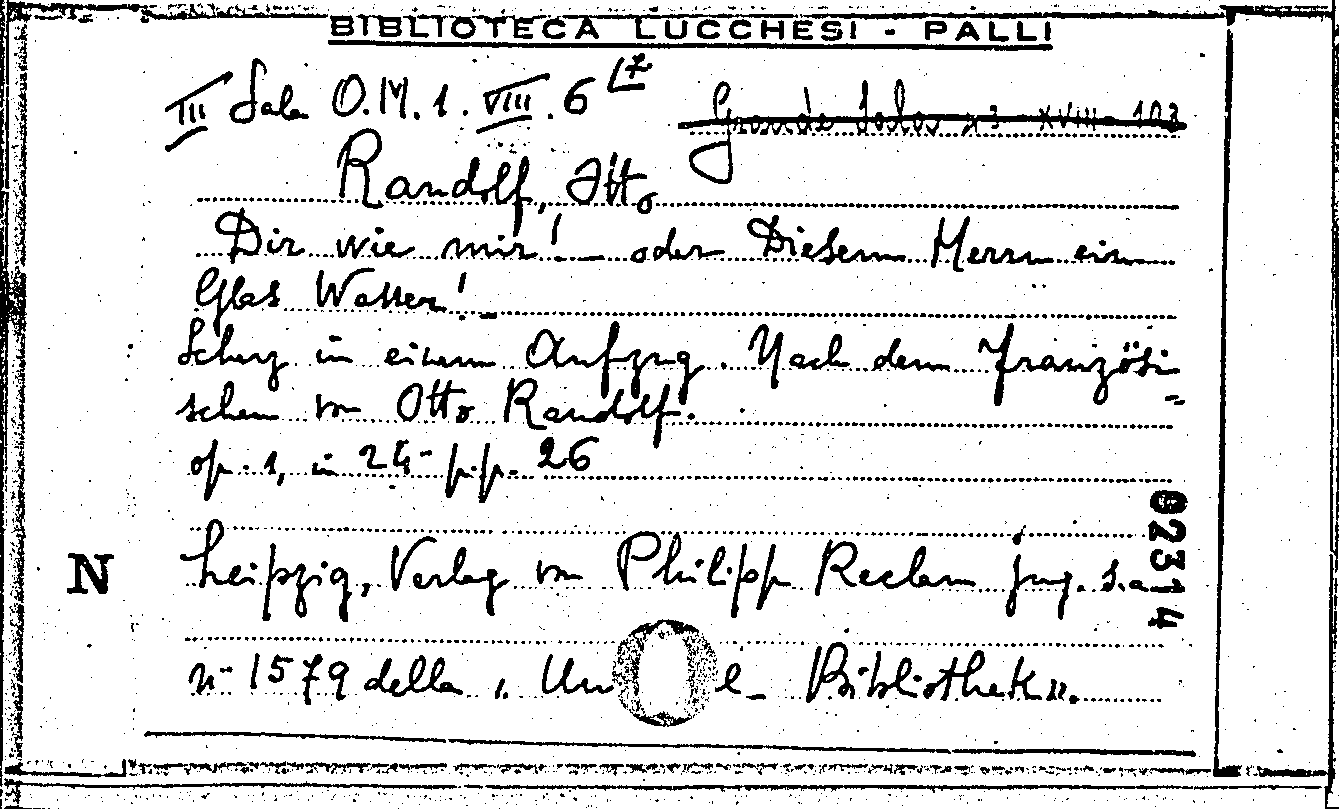 BIBLIOTECA LUCCHESI - PALLI
III Sala O.M.1.VIII.6 17 Grande Sala x 3 XVIII-103
Randolf, Otto
Dir wie mir! – oder Diesem Herrn ein
Glas Wasser! –
Scherz in einem Aufzug. Nach dem Französi=
schen von Otto Randolf.
op. 1, in 24- p.p. 26
02314
N
Leipzig, Verlag von Philipp Reclam jug. s.a
n- 1579 della „ Un l- Bibliothek".